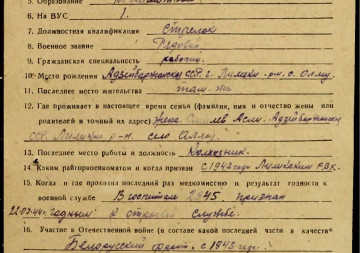 5. Образование
6. На ВУС 1.
7. Должностная квалификация Стрелок
8. Военное звание Рядовой
9. Гражданская специальность рабочий
10. Место рождения Адзейбарджанская ССР г. р-н. с.
11. Последнее место жительства там же
12. Где проживает в настоящее время семья (фамилия, имя и отчество жены или
родителей и точный их адрес) Жена Адзейбарджанская
ССР. р-н. село
13. Последнее место работы и должность Колхозник
14. Каким райгорвоенкоматом и когда призван с 1942 года РВК.
15. Когда и где проходил последний раз медкомиссию и результат годности к
военной службе В госпитале 2945, признан
22.07.44 г. годным к строевой службе.
16. Участие в Отечественной войне (в составе какой последней части в качестве
Белорусский фронт. с 1943 года.